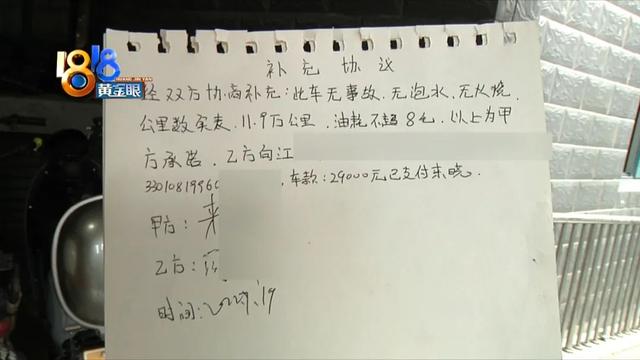 1818
黄金眼
补充协议
经双方协商补充:此车无事故、无泡水、无火烧,
公里数实表,11.9万公里,油耗不超8毛,以上为甲
方承诺,乙方向江
3301081996
,车款:29000元已支付来晓。
甲方:来
乙方:
时间: